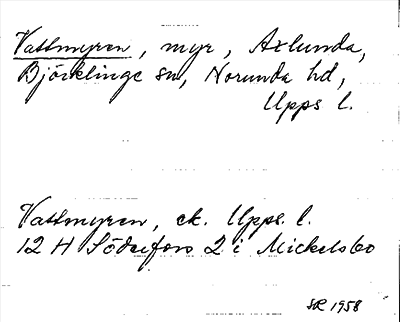 Vattmyren, myr, Axlunda,
Björklinge sn, Norunda hd,
Upps l.
Vattmyren, ek. Upps. l.
12 H Söderfors 2 i Mickelsbo
SR 1958